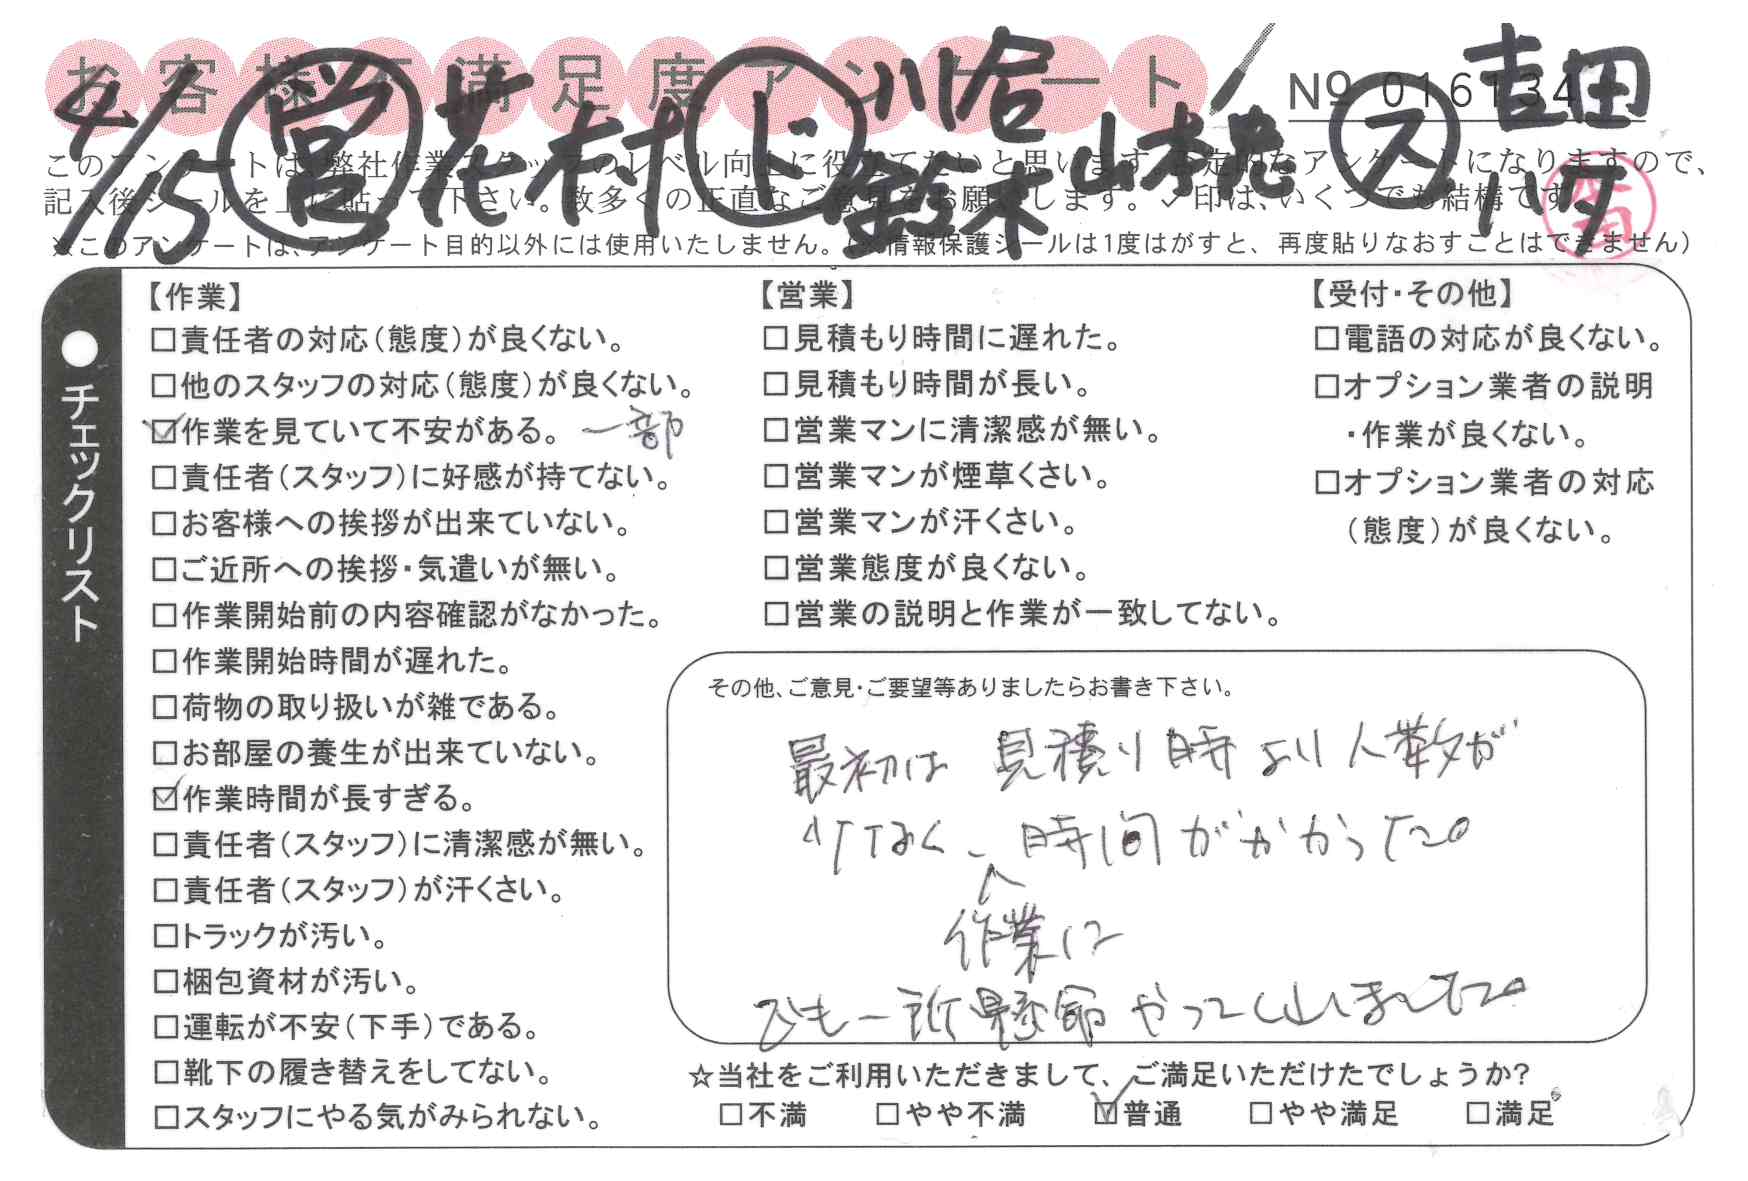 お客様不満足度アンケート
№ 016134
4/15 営 花村 ド 川合 鈴木 山本 ス 吉田 ハタ
このアンケートは、弊社作業スタッフのレベル向上に役立てたいと思います。否定的なアンケートになりますので、
記入後シールを上に貼って下さい。数多くの正直なご意見をお願いします。✓印は、いくつでも結構です。
※このアンケートは、アンケート目的以外には使用いたしません。(※情報保護シールは1度はがすと、再度貼りなおすことはできません)
●チェックリスト
【作業】
□責任者の対応(態度)が良くない。
□他のスタッフの対応(態度)が良くない。
☑作業を見ていて不安がある。 一部
□責任者(スタッフ)に好感が持てない。
□お客様への挨拶が出来ていない。
□ご近所への挨拶・気遣いが無い。
□作業開始前の内容確認がなかった。
□作業開始時間が遅れた。
□荷物の取り扱いが雑である。
□お部屋の養生が出来ていない。
☑作業時間が長すぎる。
□責任者(スタッフ)に清潔感が無い。
□責任者(スタッフ)が汗くさい。
□トラックが汚い。
□梱包資材が汚い。
□運転が不安(下手)である。
□靴下の履き替えをしてない。
□スタッフにやる気がみられない。
【営業】
□見積もり時間に遅れた。
□見積もり時間が長い。
□営業マンに清潔感が無い。
□営業マンが煙草くさい。
□営業マンが汗くさい。
□営業態度が良くない。
□営業の説明と作業が一致してない。
【受付・その他】
□電話の対応が良くない。
□オプション業者の説明
・作業が良くない。
□オプション業者の対応
(態度)が良くない。
その他、ご意見・ご要望等ありましたらお書き下さい。
最初は 見積り時より人数が
少なく、時間がかかった。
作業に
でも一所懸命やってくれました。
☆当社をご利用いただきまして、ご満足いただけたでしょうか?
□不満 □やや不満 ☑普通 □やや満足 □満足